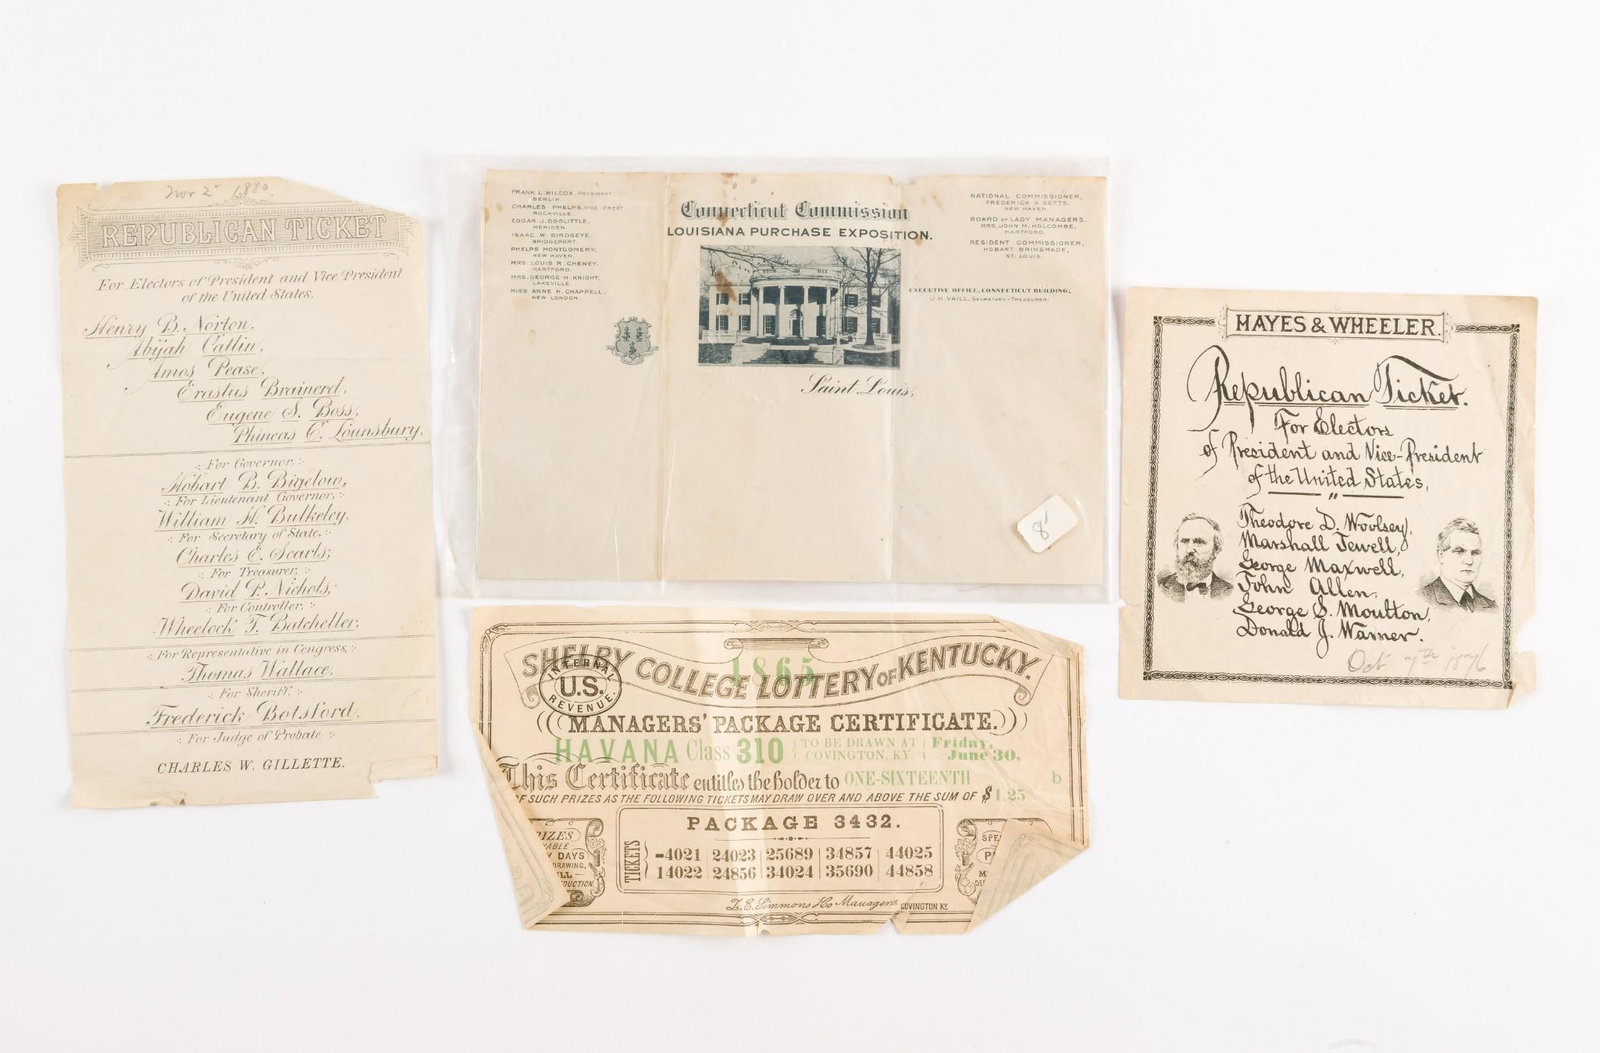 Nov 2 1880.
REPUBLICAN TICKET
For Electors of President and Vice President
of the United States.
Henry B. Norton,
Abijah Catlin,
Amos Pease,
Erastus Brainerd,
Eugene S. Boss,
Phineas C. Lounsbury,
For Governor,
Hobart B. Bigelow,
For Lieutenant Governor,
William H. Bulkeley,
For Secretary of State,
Charles E. Searls,
For Treasurer,
David P. Nichols,
For Controller,
Wheelock T. Batcheller,
For Representative in Congress,
Thomas Wallace.
For Sheriff,
Frederick Botsford.
For Judge of Probate
CHARLES W. GILLETTE.
FRANK L. WILCOX, PRESIDENT
BERLIN.
CHARLES PHELPS, VICE PREST.
ROCKVILLE.
EDGAR J. DOOLITTLE,
MERIDEN.
ISAAC W. BIRDSEYE,
BRIDGEPORT.
PHELPS MONTGOMERY,
NEW HAVEN.
MRS. LOUIS R. CHENEY,
HARTFORD.
MRS. GEORGE H. KNIGHT,
LAKEVILLE.
MISS ANNE H. CHAPPELL,
NEW LONDON.
Connecticut Commission
LOUISIANA PURCHASE EXPOSITION.
NATIONAL COMMISSIONER,
FREDERICK A. BETTS,
NEW HAVEN.
BOARD OF LADY MANAGERS,
MRS. JOHN M. HOLCOMBE,
HARTFORD
RESIDENT COMMISSIONER,
HOBART BRINSMADE,
ST. LOUIS.
EXECUTIVE OFFICE, CONNECTICUT BUILDING,
J. H. VAILL, SECRETARY-TREASURER.
Saint Louis,
8
SHELBY COLLEGE LOTTERY OF KENTUCKY.
1865
INTERNAL
U.S.
REVENUE.
MANAGERS' PACKAGE CERTIFICATE.
HAVANA Class 310 TO BE DRAWN AT COVINGTON, KY. Friday, June 30.
This Certificate entitles the holder to ONE-SIXTEENTH b
OF SUCH PRIZES AS THE FOLLOWING TICKETS MAY DRAW OVER AND ABOVE THE SUM OF $1.25
PACKAGE 3432.
TICKETS
-4021 24023 25689 34857 44025
14022 24856 34024 35690 44858
Z. E. Simmons & Co Managers COVINGTON KY.
HAYES & WHEELER.
Republican Ticket.
For Electors
of President and Vice-President
of the United States,
"
Theodore D. Woolsey,
Marshall Jewell,
George Maxwell,
John Allen,
George S. Moulton,
Donald J. Warner.
Oct 7th 1876